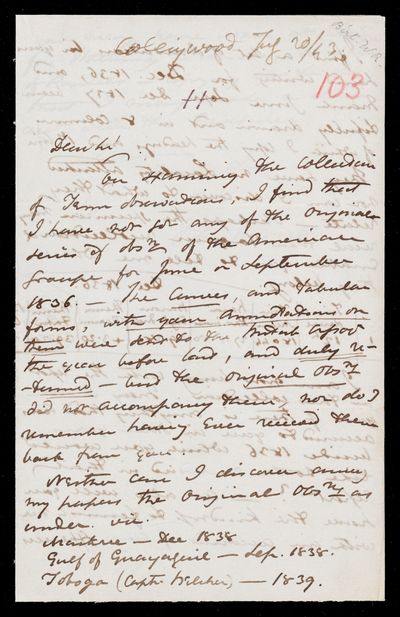 Birt W.R.
Collingwood July 20/43
103
Dear Sir
On examining the Collection
of Term observations, I find that
I have not got any of the original
series of obsns of the American
groupe for June or September
1836 — The Curves, and Tabular
forms, with your annotations on
them were sent to the British Assocn
the year before last, and duly re-
-turned — but the original obsns
did not accompany them nor do I
remember having ever received them
back from you
Neither can I discover among
my papers the original Obsns as
under. viz.
— Dec 1838
Gulf of Guayaquil — Sep. 1838.
Tobago (Captn Belcher) — 1839.